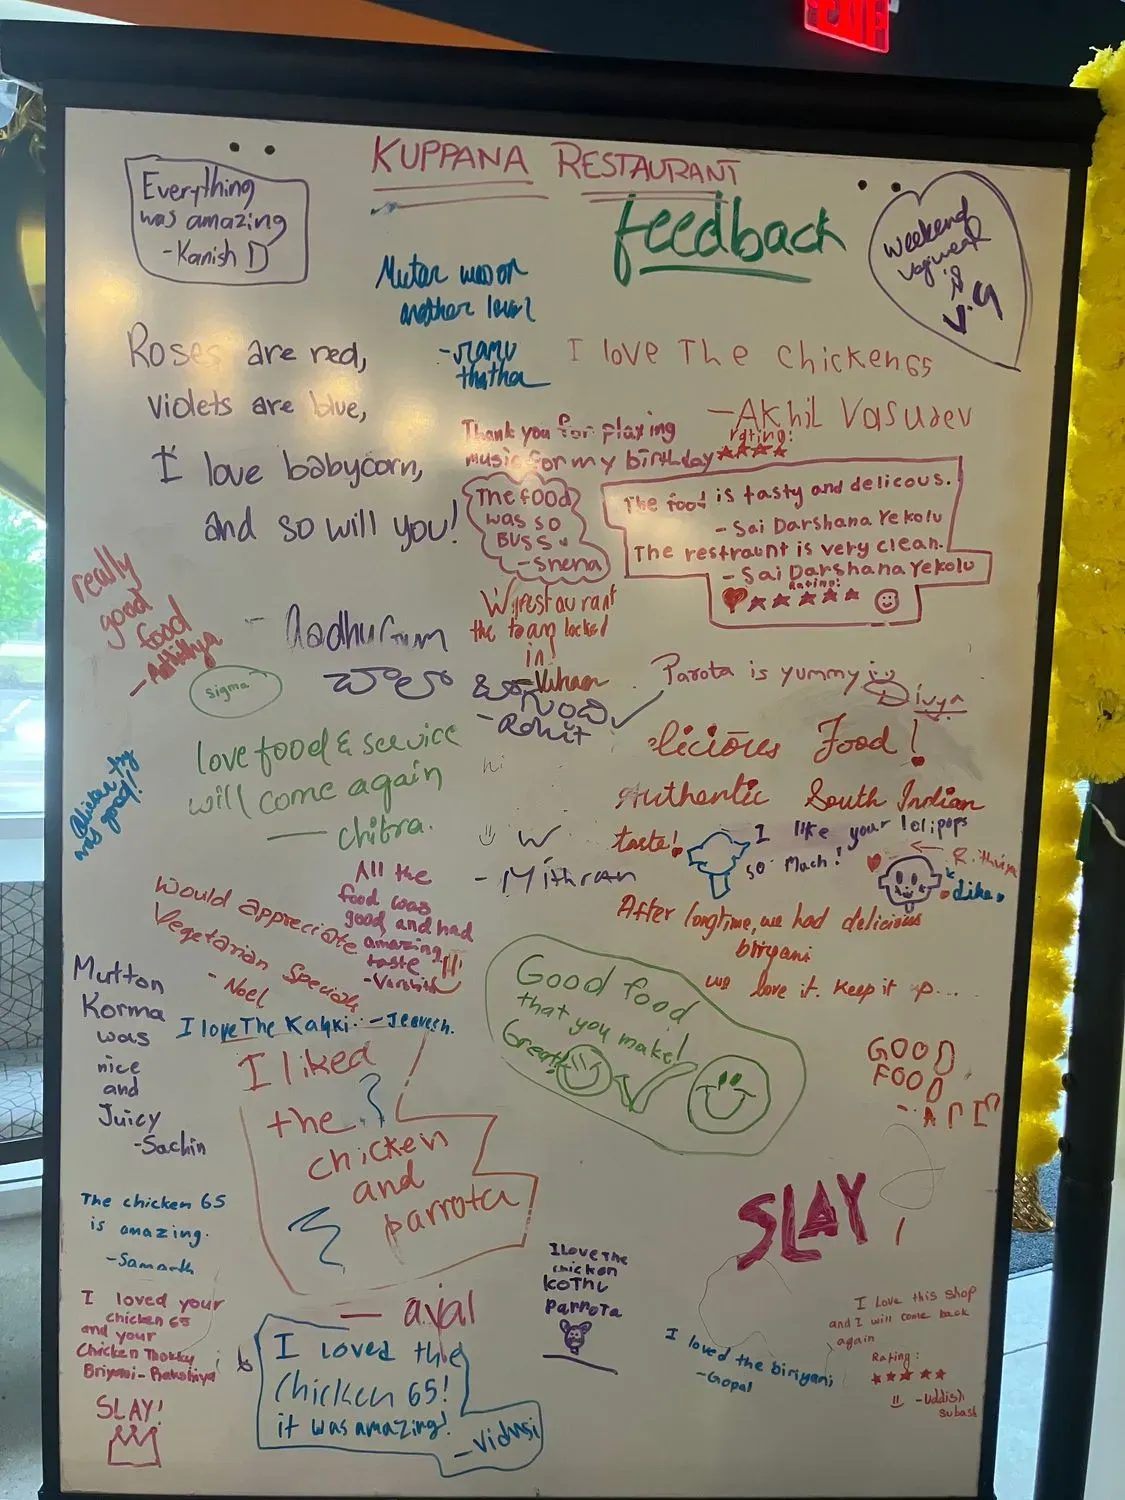 EXIT
KUPPANA RESTAURANT
feedback
Everything
was amazing
- Kanish D
weekend
is
V.G
Mutton was on
another level
- ramu
thatha
Roses are red,
violets are blue,
I love babycorn,
and so will you!
- Aadhu
I love The chicken65
- Akhil Vasudev
Thank you for playing
music for my birthday
rating:
The food
was so
BUSS
- Sneha
The food is tasty and delicous.
- Sai Darshana Yekolu
The restraunt is very clean.
- Sai Darshana Yekolu
Rating:
really
good
food
- Adhithya
sigma
W restaurant
the team locked
in!
- Vihaan
చాలా బాగుంది
- Rohit
Parota is yummy
Divya
love food & service
will come again
- chitra.
hi
licious Food!
Authentic South Indian
taste!
I like your lolipops
so much!
R.
Like.
was good!
W
- Mithran
After longtime, we had delicious
biryani
we love it. Keep it up...
All the
food was
good and had
amazing
taste !!!
- Varshith
Would appreciate
Vegetarian Specials
- Noel
Mutton
Korma
was
nice
and
Juicy
- Sachin
I love The Kalyki - Jeevesh.
Good food
that you make!
Great!
I liked
the
chicken
and
parrota
- aval
GOOD
FOOD
SLAY
The chicken 65
is amazing.
- Samarth
I love the
chicken
KOTHU
parrota
I loved your
chicken 65
and your
Chicken Thokku
Briyani - Rakshiya
SLAY!
I loved the
Chicken 65!
it was amazing!
- Vidusi
I loved the biriyani
- Gopal
I love this shop
and I will come back
again
Rating:
- Uddish
subash